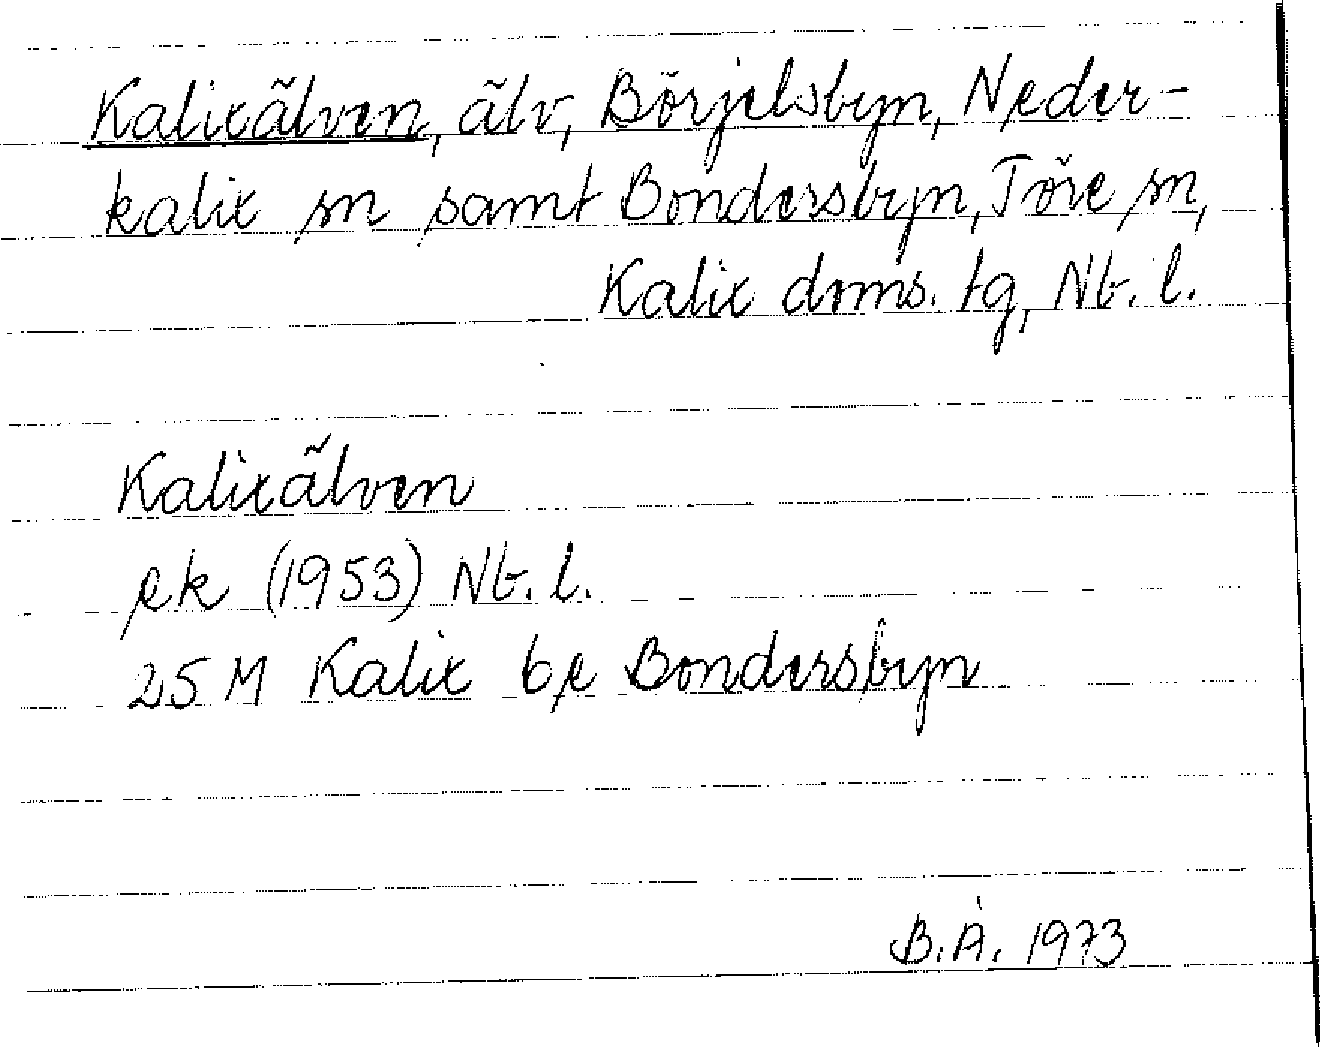 Kalixälven, älv, Börjelsbyn, Neder-
kalix sn samt Bondersbyn, Töre sn,
Kalix doms. tg, Nb. l.
Kalixälven
ek (1953) Nb. l.
25 M Kalix be Bondersbyn
B.Å. 1973